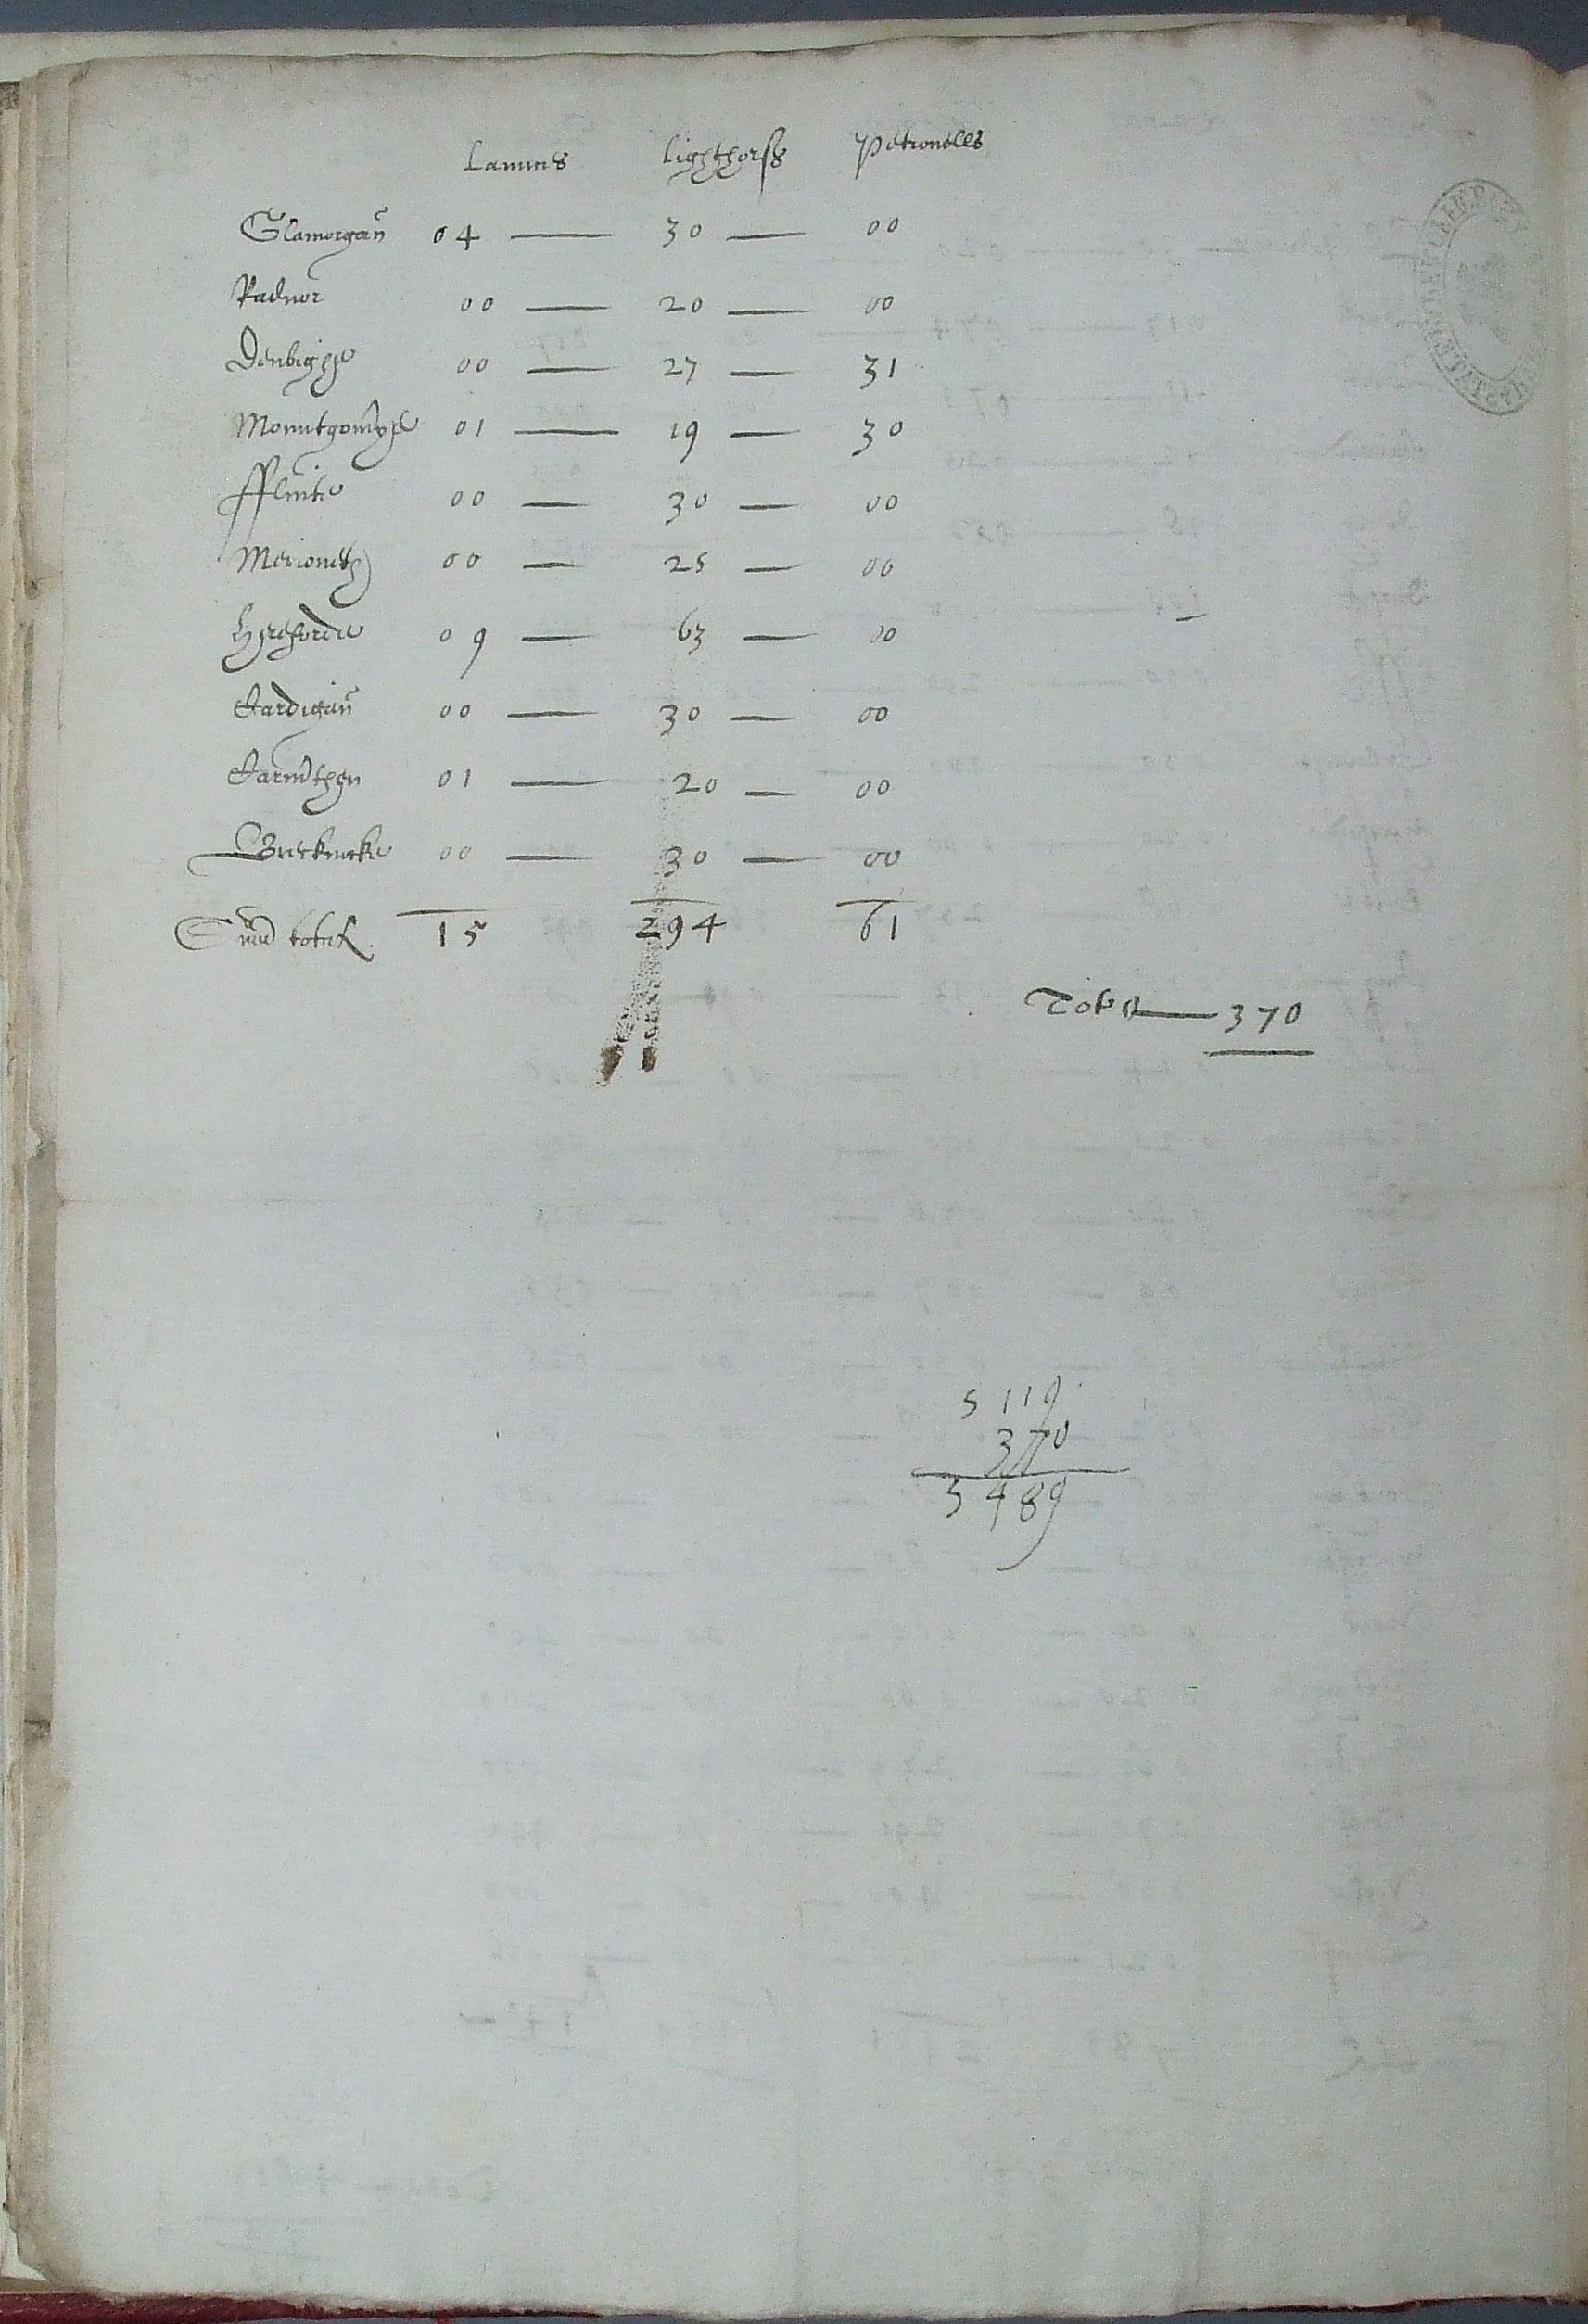 Launces lighthorss Petronells
Glamorgañ 04 — 30 — 00
Radnor 00 — 20 — 00
Denbighe 00 — 27 — 31
Mountgom̃ye 01 — 19 — 30
fflinte 00 — 30 — 00
Merioneth 00 — 25 — 00
Hereforde 09 — 63 — 00
Cardigañ 00 — 30 — 00
Carm̃then 01 — 20 — 00
Brecknocke 00 — 30 — 00
Sum̃a total 15 294 61
Total — 370
5119
370
5489